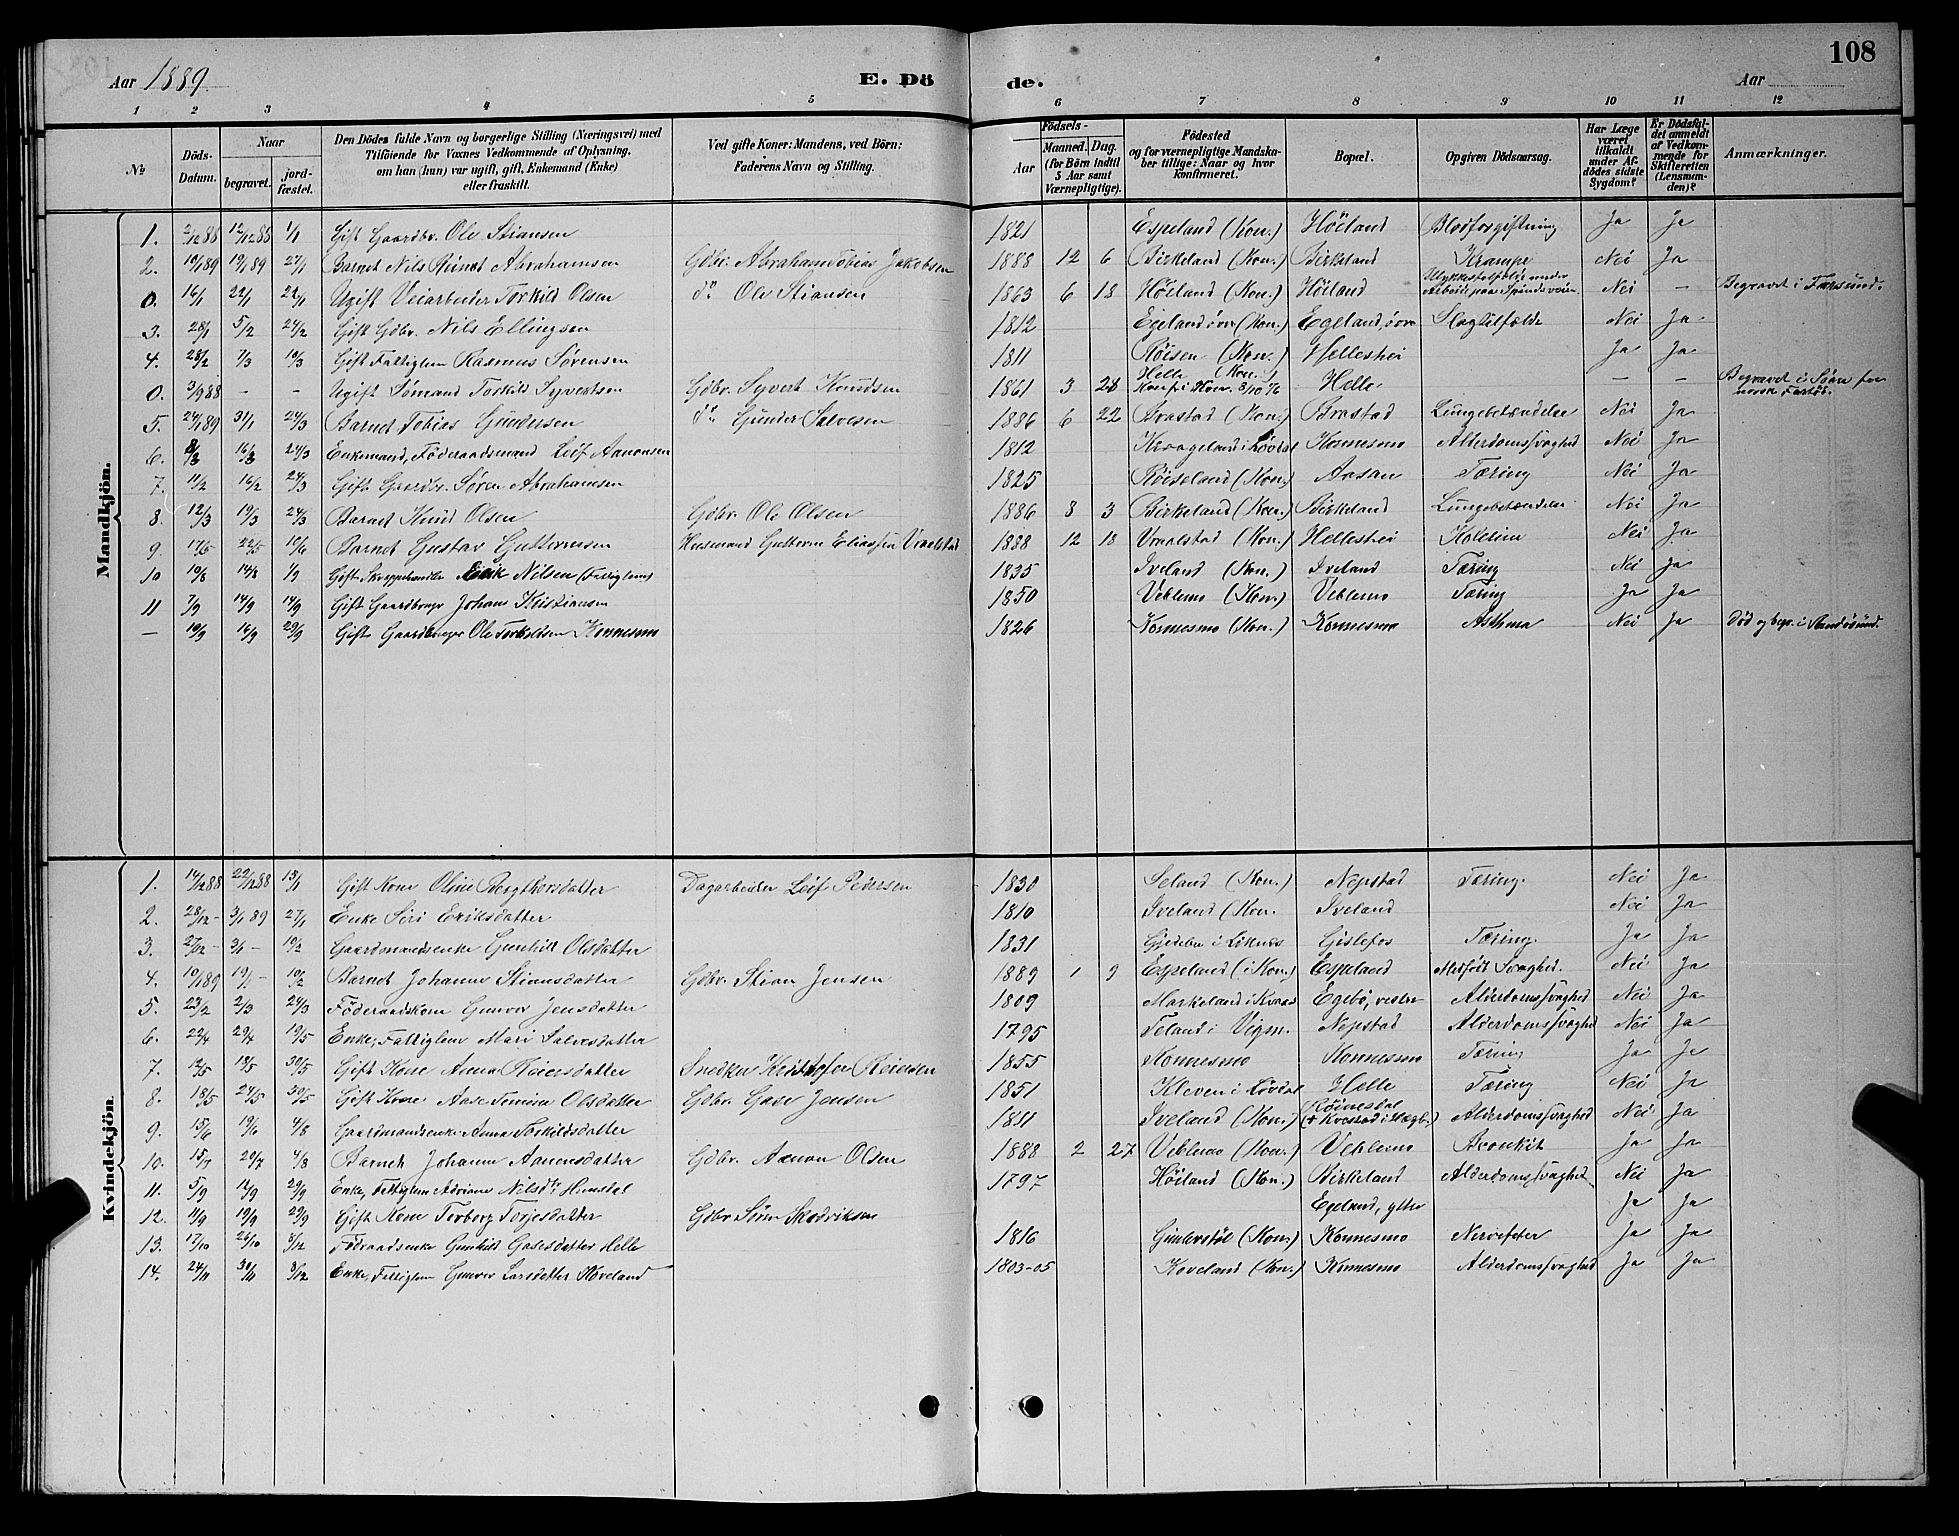 108
Aar 1889.
E. Dö
de.
Aar
1 2 3 4 5 6 7 8 9 10 11 12
No
Döds-Datum.
Naar
begravet.
jord-fæstet.
Den Dödes fulde Navn og borgerlige Stilling (Næringsvei) med Tilföiende for Voxnes Vedkommende af Oplysning, om han (hun) var ugift, gift, Enkemand (Enke) eller fraskilt.
Ved gifte Koner: Mandens, ved Börn: Faderens Navn og Stilling.
Födsels-
Aar
Maaned. Dag.
(for Börn indtil 5 Aar samt Værnepligtige).
Födested og for værnepligtige Mandskaber tillige: Naar og hvor konfirmeret.
Bopæl.
Opgiven Dödsaarsag.
Har Læge været tilkaldt under Afdödes sidste Sygdom?
Er Dödsfaldet anmeldt af Vedkommende for Skifteretten (Lensmanden)?
Anmærkninger.
Mandkjön.
1. 2/12 88 12/12 88 1/1 Gift Gaardbr. Ole Stiansen 1821 Espeland (Kon.) Höiland Blodforgiftning Ja Ja
2. 10/1 89 19/1 89 27/1 Barnet Nils Abrahamsen Gdbr. Abraham Tobias Jakobsen 1888 12 6 Birkeland (Kon.) Birkeland Krampe Nei Ja
0. 16/1 22/1 22/1 Ugift Veiarbeider Torkild Olsen do Ole Stiansen 1863 6 18 Höiland (Kon.) Höiland Ulykkestilfælde under Arbeide paa Spindsveien. Nei – Begravet i Farsund.
3. 28/1 5/2 24/2 Gift Gdbr. Nils Ellingsen 1812 Egeland, övre (Kon.) Egeland, övre Slagtilfælde Nei Ja
4. 28/2 7/3 10/3 Gift Fattiglem Rasmus Sörensen 1811 Röisen (Kon.) Hellestöi Ja Ja
0. 3/9 88 – – Ugift Sömand Torkild Syvertsen Gdbr. Syvert Knudsen 1861 3 28 Helle (Kon.) Konf. i Kon. 8/10 76 Helle – – Begravet i Söen fra norsk Fartöi.
5. 24/1 89 31/1 24/3 Barnet Tobias Gundersen do Gunder Salvesen 1886 6 22 Brastad (Kon.) Brastad Lungebetændelse Nei Ja
6. 8/3 16/3 24/3 Enkemand, Föderaadsmand Leif Aanensen 1812 Kvaageland i Lövdal Konnesmo Alderdomssvaghed Nei Ja
7. 11/2 16/2 24/3 Gift Gaardbr. Sören Abrahamsen 1825 Röiseland (Kon.) Aasan Tæring Nei Ja
8. 12/3 19/3 24/3 Barnet Knud Olsen Gdbr. Ole Olsen 1886 8 3 Birkeland (Kon.) Birkeland Lungebetændelse Nei Ja
9. 17/5 22/5 10/6 Barnet Gustav Guttormsen Husmand Guttorm Eliassen Vraalstad 1888 12 18 Vraalstad (Kon.) Hellestöi Kolerine Nei Ja
10 10/8 14/8 1/9 Gift Skreppehandler Erik Nilsen (Fattiglem) 1835 Iveland (Kon.) Iveland Tæring Nei Ja
11 7/9 14/9 14/9 Gift Gaardbruger Johan Kristiansen 1850 Veblemo (Kon.) Veblemo Tæring Ja Ja
– 10/9 16/9 29/9 Gift Gaardbruger Ole Torkeldsen Konnesmo 1826 Konnesmo (Kon.) Konnesmo Asthma Nei Ja Död og begr. i
Kvindekjön.
1. 14/12 88 22/12 88 13/1 Gift Kone Oline Bergthorsdatter Dagarbeider Leif Pedersen 1830 Seland (Kon.) Nepstad Tæring. Nei Ja
2. 28/12 – 3/1 89 27/1 Enke Siri Eriksdatter 1810 Iveland (Kon. Iveland Nei Ja
3. 27/12 – 3/1 – 10/2 Gaardmandsenke Gunhild Olsdatter 1831 Gjedebo i Liknes Gislefos Tæring. Ja Ja
4. 10/1 89 19/1 – 10/2 Barnet Johanne Stiansdatter Gdbr. Stian Jensen 1889 1 9 Espeland (i Kon.) Espeland Medfödt Svaghed. Nei Ja
5. 23/2 2/3 24/3 Föderaadskone Gunvor Jensdatter 1809 Markeland i Kvaas Egebö, vestre Alderdomssvaghed Nei Ja
6. 22/4 29/4 19/5 Enke, Fattiglem Mari Salvesdatter 1795 Teland i Vigm. Nepstad Alderdomssvaghed Nei Ja
7. 12/5 18/5 30/5 Gift Kone Anna Reiersdatter Snedker Kristofer Reiersen 1855 Konnesmo Konnesmo Tæring Ja Ja
8. 18/5 24/5 30/5 Gift Kone Aase Tomine Olsdatter Gdbr. Gase Jensen 1851 Kleven i Lövdal Helle Tæring Nei Ja
9. 15/6 19/6 4/8 Gaardmandsenke Anna Torkildsdatter 1811 Iveland (Kon.) Röinesdal († Kvestad i Hægb.) Alderdomssvaghed Nei Ja
10. 15/7 20/7 4/8 Barnet Johanne Aanensdatter Gdbr. Aanon Olsen 1888 2 27 Veblemo (Kon.) Veblemo Bronkit Ja Ja
11. 5/9 12/9 29/9 Enke, Fattiglem Adriane Nilsdtr. Homdal 1797 Höiland (Kon.) Birkeland Alderdomssvaghed Nei Ja
12. 11/9 19/9 29/9 Gift Kone Torborg Torjesdatter Gdbr Sören Egeland, ytre Ja Ja
13. 17/10 26/10 8/12 Föderaadsenke Gunhild Gasesdatter Helle 1816 Ginlevstöl (Kon.) Konnesmo Nervefeber Ja Ja
14. 24/11 30/11 8/12 Enke, Fattiglem Gunvor Larsdatter Hoveland 1803-05 Hoveland (Kon.) Konnesmo Alderdomssvaghed Ja Ja